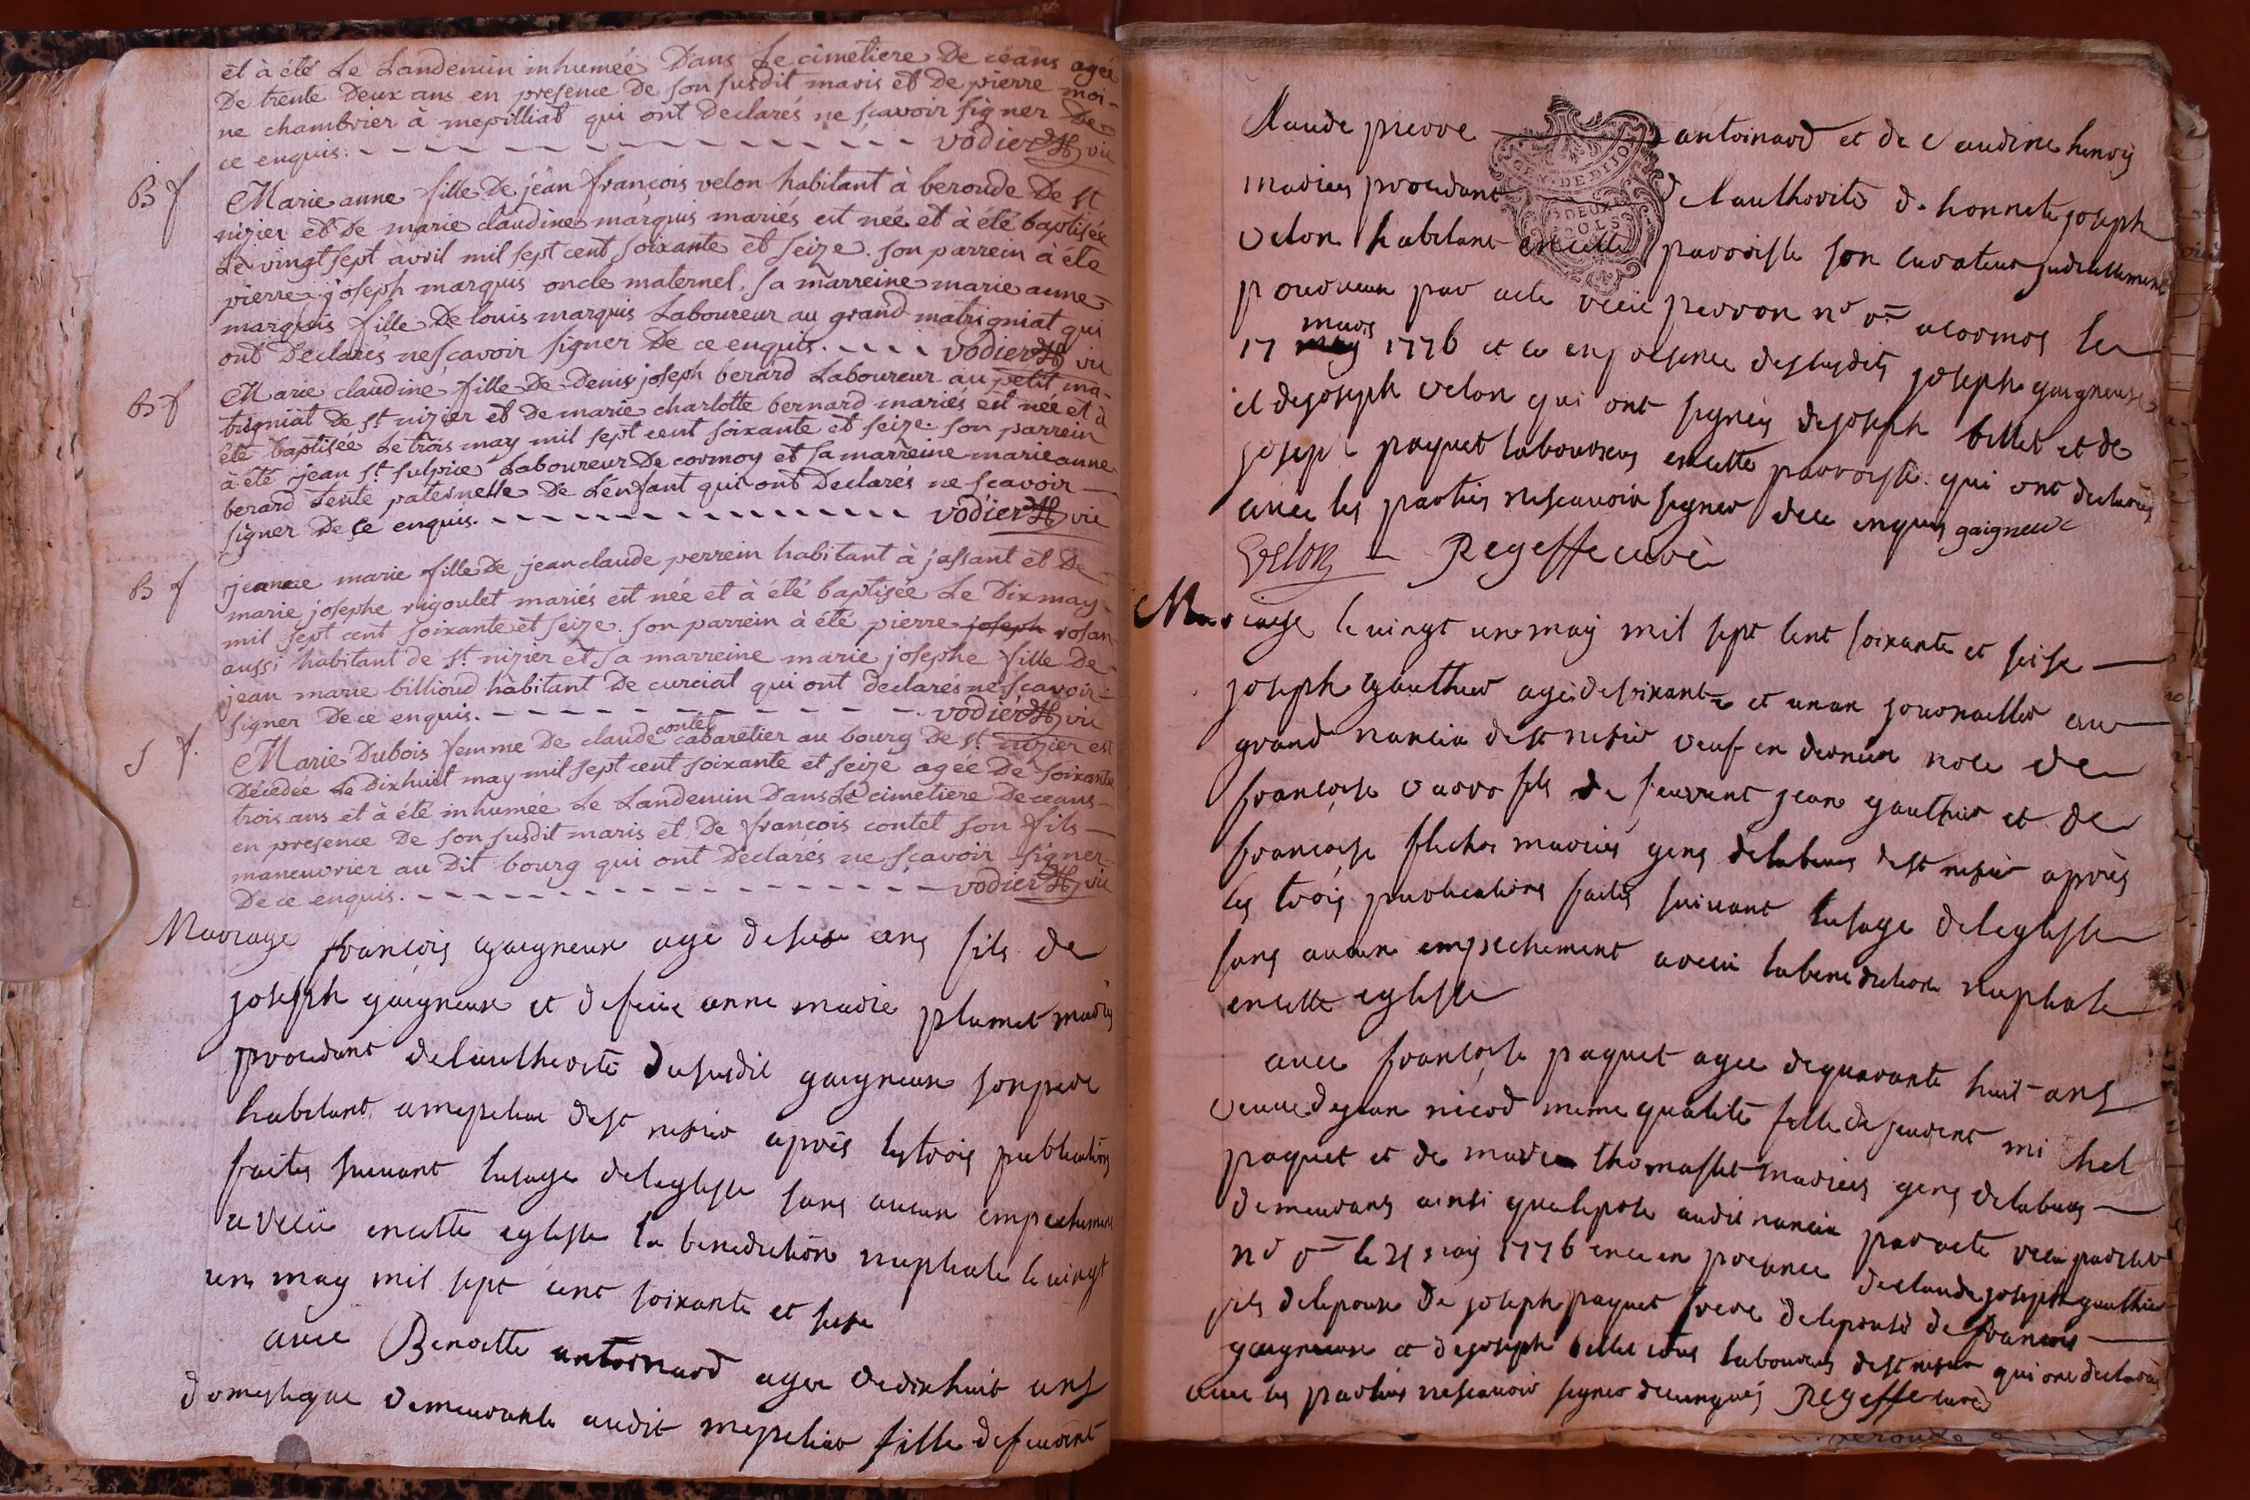 et à été Le Landemin inhumée Dans Le cimetiere De céans agée
De trente Deux ans en presence de son susdit maris et De pierre moi-
ne chambrier à mepilliat qui ont Declarés ne sçavoir signer De
ce enquis. vodier vic
B f Marie anne fille De jean françois velon habitant à beroude De st
nizier et De marie claudine marquis mariés est née et à été baptisée
Le vingt sept avril mil sept cent soixante et seize. son parrein à été
pierre joseph marquis oncle maternel, sa marreine marie anne
marquis fille De louis marquis Laboureur au grand matrigniat qui
ont Declarés ne sçavoir signer De ce enquis. vodier vic
B f Marie claudine fille De Denis joseph berard Laboureur au petit ma-
trigniat De st nizier et De marie charlotte bernard mariés est née et à
été baptisée Le trois may mil sept cent soixante et seize. son parrein
à été jean st sulpice Laboureur De cormoy et sa marreine marie anne
berard tente paternelle De L'enfant qui ont Declarés ne sçavoir
signer De ce enquis. vodier vic
B f jeanne marie fille De jean claude perrein habitant à jassant et De
marie josephe rigoulet mariés est née et à été baptisée Le Dix may
mil sept cent soixante et seize. son parrein à été pierre joseph rosan
aussi habitant de st nizier et sa marreine marie josephe fille De
jean marie billioud habitant De curciat qui ont declarés ne sçavoir
signer De ce enquis. vodier vic
S f. Marie Dubois femme De claude contet cabaretier au bourg De st. nizier est
Décédée Le Dixhuit may mil sept cent soixante et seize agée De soixante
trois ans et à été inhumée Le Landemin Dans Le cimetiere De ceans
en presence De son susdit maris et De françois contet son fils
maneuvrier au Dit bourg qui ont Declarés ne sçavoir signer
De ce enquis. vodier vic
Mariage françois gaigneux agé de seize ans fils de
joseph gaigneux et defeüe anne marie plumet mariés
procedant delauthorité dususdit gaigneux son pere
habitant a mepeliat de st nisier après les trois publications
faites suivant lusage deleglise sans aucun empechement
a reciü encette eglise la benediction nuptiale le vingt
un may mil sept cent soixante et seise
avec Benoitte antoinard agee dedixhuit ans
domestique demeurante audit mepeliat fille defeuvent
Claude pierre antoinard et de claudine henry
mariés procedant de lauthorité de honnete joseph
velon habitant encette parroisse son curateur judiciellement
pourveue par acte recüe perron nre rl acormos le
17 mars 1776 et ce en presence des susdits joseph gaigneux
et dejoseph velon qui ont signés dejoseph billet et de
joseph paquet laboureurs encette parroisse qui ont declarés
avec les parties nescavoir signer dece enquis gaigneux
Velon Regeffe curé
Mariage le vingt un may mil sept cent soixante et seise
joseph gauthier agé desoixante et un an journallier au
grand nancia de st nisier veuf en derniere noce de
françoise fils de feuvent jean gauthier et de
françoise flechon mariés gens delabeur de st nisier après
les trois publications faites suivant lusage deleglise
sans aucun empechement a recüe la benediction nuptiale
encette eglise
avec françoise paquet agee dequarante huit ans
veuve dejean nicod meme qualité fille defeuvent mi chel
paquet et de marie thomasset mariés gens delabeur
demeurans ainsi que lepoux audit nancia par acte recüe par
nre rl le 21 may 1776 ence en presence declaude joseph gauthier
fils delepoux de joseph paquet frere delepouse de francois
gaigneux et dejoseph billet tous laboureurs de st nisier qui ont declarés
avec les parties nescavoir signer deceenquis Regeffe curé